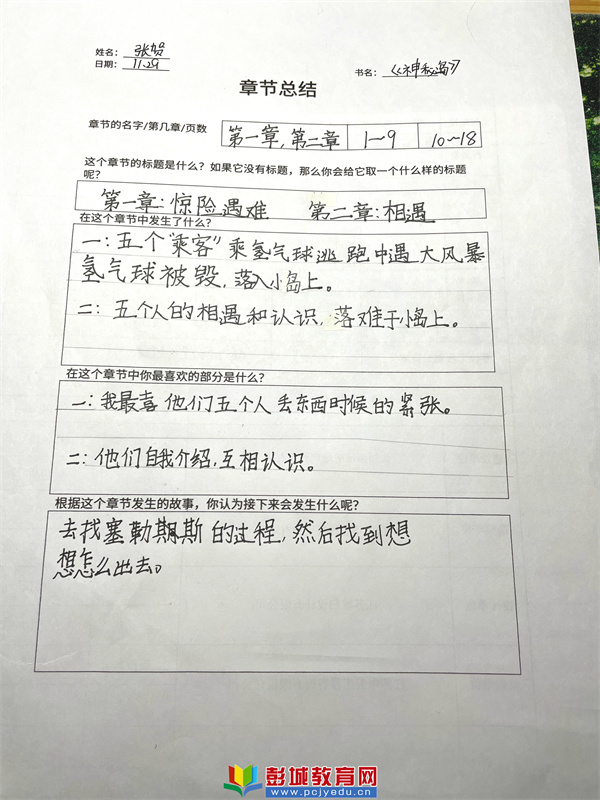 姓名：张贺
日期：11.29
书名：《神秘岛》
章节总结
章节的名字/第几章/页数 第一章，第二章 1～9 10～18
这个章节的标题是什么？如果它没有标题，那么你会给它取一个什么样的标题
呢？
第一章：惊险遇难 第二章：相遇
在这个章节中发生了什么？
一：五个“乘客”乘氢气球逃跑中遇大风暴
氢气球被毁，落入小岛上。
二：五个人的相遇和认识，落难于小岛上。
在这个章节中你最喜欢的部分是什么？
一：我最喜他们五个人丢东西时候的紧张。
二：他们自我介绍，互相认识。
根据这个章节发生的故事，你认为接下来会发生什么呢？
去找塞勒期斯的过程，然后找到想
想怎么出去。
彭城教育网
www.pcjyedu.cn